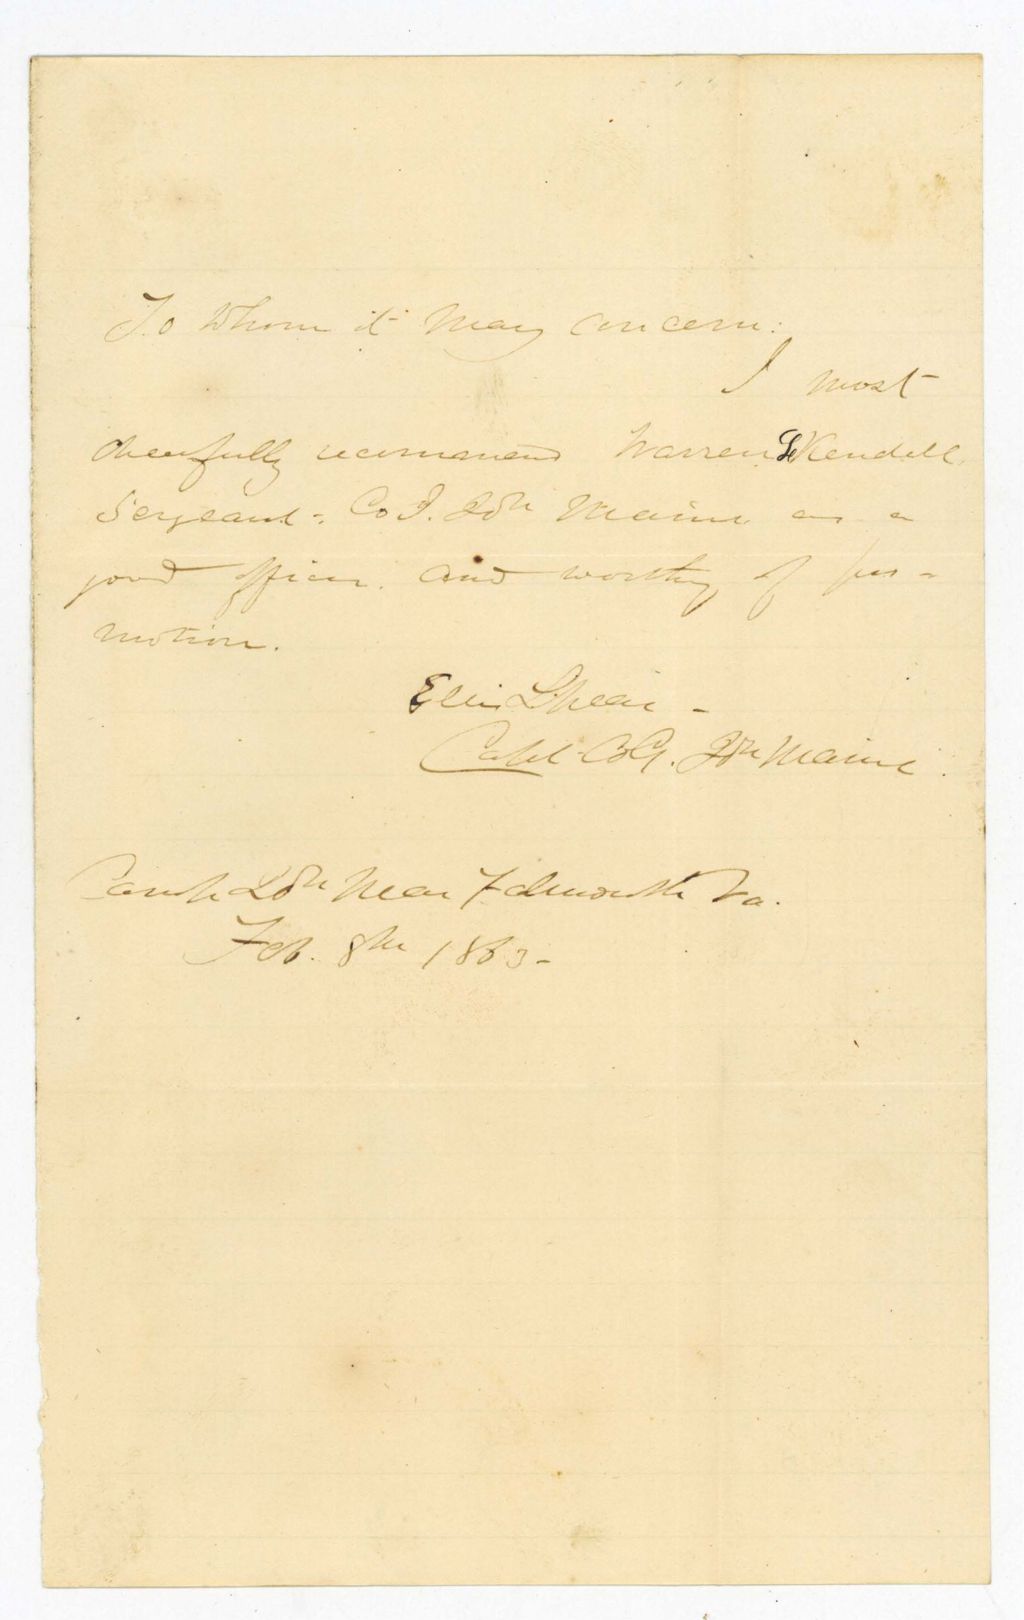 To Whom it May concern:
I most
cheerfully recommend Warren L Kendall
Sergeant - Co I. 20th Maine as a
good officer. and worthy of pro-
motion.
Ellis Spear -
Capt Co G. 20th Maine.
Camp 20th Near Falmouth Va.
Feb. 8th 1863 -